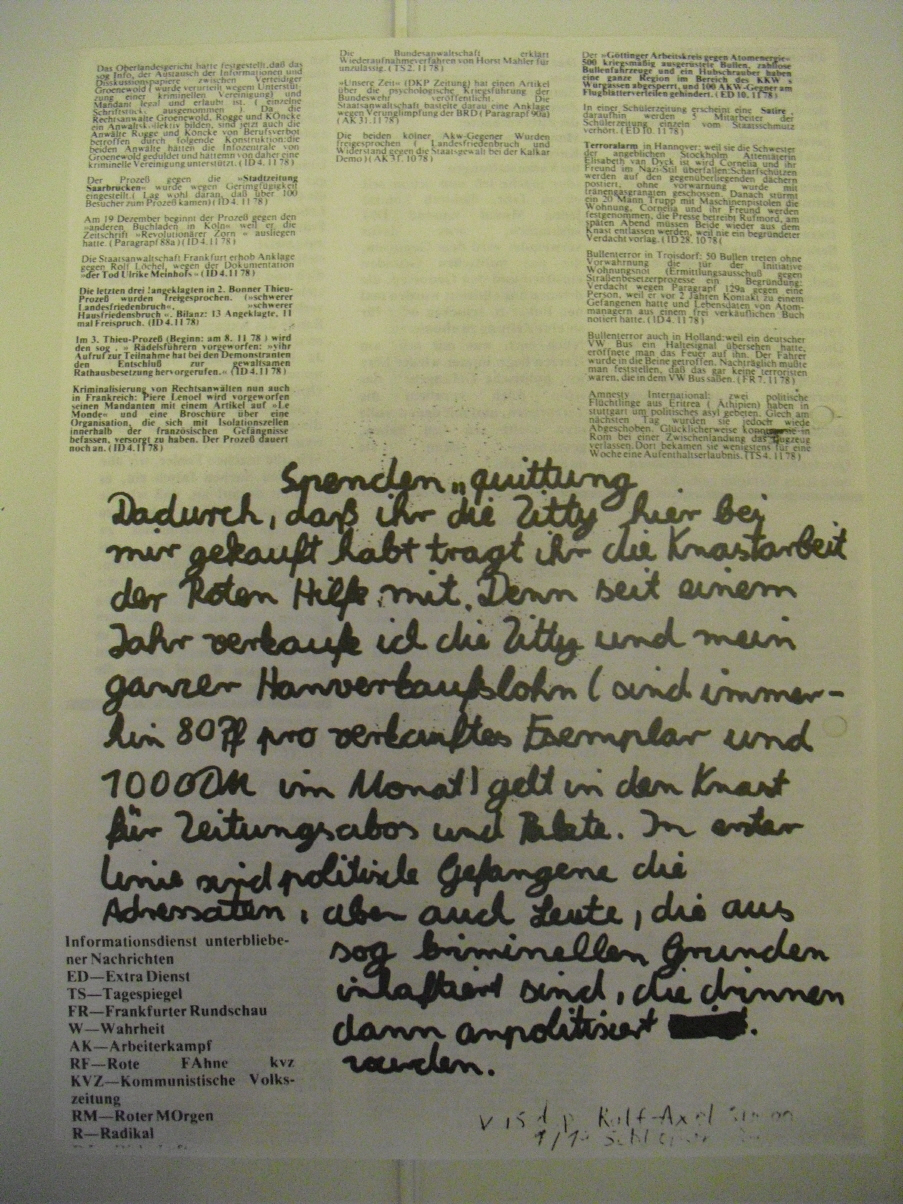 Das Oberlandesgericht hatte festgestellt, daß das
sog Info, der Austausch der Informationen und
Diskussionspapiere zwischen Verteidiger
Groenewold ( wurde verurteilt wegem Unterstüt-
zung einer kriminellen Vereinigung) und
Mandant legal und erlaubt ist. ( einzelne
Schriftstück. ausgenommen ) Da die
Rechtsanwälte Groenewold, Rogge und KOncke
ein Anwaltskollektiv bilden, sind jetzt auch die
Anwälte Rogge und Köncke von Berufsverbot
betroffen durch folgende Konstruktion:die
beiden Anwälte hätten die Infozentrale von
Groenewold geduldet und hättemn von daher eine
kriminelle Vereinigung unterstützt. ( ID 4. 11 78 )
Der Prozeß gegen die »Stadtzeitung
Saarbrücken« wurde wegen Geringfügigkeit
eingestellt.( Lag wohl daran, daß über 100
Besucher zum Prozeß kamen) ( ID 4.11 78 )
Am 19 Dezember beginnt der Prozeß gegen den
»anderen Buchladen in Köln« weil er die
Zeitschrift »Revolutionärer Zorn « ausliegen
hatte. ( Paragrapf 88a) ( ID 4. 11 78 )
Die Staatsanwaltschaft Frankfurt erhob Anklage
gegen Rolf Löchel, wegen der Dokumentation
»der Tod Ulrike Meinhofs« ( ID 4.11 78 )
Die letzten drei !angeklagten in 2. Bonner Thieu-
Prozeß wurden freigesprochen. (»schwerer
Landesfriedenbruch«, »schwerer
Hausfriedensbruch «. Bilanz: 13 Angeklagte, 11
mal Freispruch. (ID 4.11 78)
Im 3. Thieu-Prozeß (Beginn: am 8. 11 78 ) wird
den sog . « Rädelsführern vorgeworfen: »«ihr
Aufruf zur Teilnahme hat bei den Demonstranten
den Entschluß zur gewaltsamen
Rathausbesetzung hervorgerufen.« ( ID 4.11 78 )
Kriminalisierung von Rechtsanwälten nun auch
in Frankreich: Piere Lenoel wird vorgeworfen
seinen Mandanten mit einem Artikel auf «Le
Monde« und eine Broschüre über eine
Organisation, die sich mit Isolationszellen
innerhalb der französischen Gefängnisse
befassen, versorgt zu haben. Der Prozeß dauert
noch an. ( ID 4.11 78 )
Die Bundesanwaltschaft erklärt
Wiederaufnahmeverfahren von Horst Mahler für
unzulässig. ( TS 2. 11 78 )
»Unsere Zeit« (DKP Zeitung) hat einen Artikel
über die psychologische Kriegsführung der
Bundeswehr veröffentlicht. Die
Staatsanwaltschaft bastelte darau eine Anklage
wegen Verunglimpfung der BRD ( Paragrapf 90a)
( AK 31. 11 78 )
Die beiden kölner Akw-Gegener Wurden
freigesprochen ( Landesfriedenbruch und
Widerstand gegen die Staatsgewalt bei der Kalkar
Demo ) ( AK 31. 10 78 )
Der »Göttinger Arbeitskreis gegen Atomenergie«
500 kriegsmäßig ausgerüstete Bullen, zahllose
Bullenfahrzeuge und ein Hubschrauber haben
eine ganze Region im Bereich des KKW «
Würgassen abgesperrt, und 100 AKW-Gegner am
Flugblattverteilen gehindert. ( ED 10. 11 78 )
In einer Schülerzeitung erscheint eine Satire,
daraufhin werden 5 Mitarbeiter der
Schülerzeitung einzeln vom Staatsschmutz
verhört. ( ED 10. 11 78 )
Terroralarm in Hannover: weil sie die Schwester
der angeblichen Stockholm Attentäterin
Elisabeth van Dyck ist wird Cornelia und ihr
Freund im Nazi-Stil überfallen:Scharfschützen
werden auf den gegenüberliegenden dächern
postiert, ohne vorwarnung wurde mit
tränengasgranaten geschossen. Danach stürmt
ein 20 Mann Trupp mit Maschinenpistolen die
Wohnung, Cornelia und ihr Freund werden
festgenommen, die Presse betreibt Rufmord, am
späten Abend müssen Beide wieder aus dem
Knast entlassen werden, weil nie ein begründeter
Verdacht vorlag. ( ID 28. 10 78 )
Bullenterror in Troisdorf: 50 Bullen treten ohne
Vorwarnung die Tür für der Initiative
Wohnungsnot (Ermittlungsausschuß gegen
Straßenbesetzerprozesse ein Begründung:
Verdacht wegen Paragrapf 129a gegen eine
Person, weil er vor 2 Jahren Kontakt zu einem
Gefangenen hatte und Lebensdaten von Atom-
managern aus einem frei verkäuflichen Buch
notiert hatte. ( ID 4. 11 78 )
Bullenterror auch in Holland:weil ein deutscher
VW Bus ein Haltesignal übersehen hatte,
eröffnete man das Feuer auf ihn. Der Fahrer
wurde in die Beine getroffen. Nachträglich mußte
man feststellen, daß das gar keine terroristen
waren, die in dem VW Bus saßen. ( FR 7. 11 78 )
Amnesty International: zwei politische
Flüchtlinge aus Eritrea ( Äthipien) haben in
stuttgart um politisches asyl gebeten. Glech am
nächsten Tag wurden sie jedoch wiede
Abgeschoben. Glücklicherweise konnten sie in
Rom bei einer Zwischenlandung das Flugzeug
verlassen. Dort bekamen sie wenigstens für eine
Woche eine Aufenthaltserlaubnis. (TS 4. 11 78 )
Spenden„quittung
Dadurch, daß ihr die Zitty hier bei
mir gekauft habt tragt ihr die Knastarbeit
der Roten Hilfe mit. Denn seit einem
Jahr verkaufe ich die Zitty und mein
ganzer Hanverkaufslohn ( sind immer-
hin 80 Pf pro verkauftes Exemplar und
1000 DM im Monat) geht in den Knast
für Zeitungsabos und Pakete. In erster
Linie sind politische Gefangene die
Adressaten, aber auch Leute, die aus
sog kriminellen Gründen
inhaftiert sind, die drinnen
dann anpolitisiert
wurden.
Informationsdienst unterbliebe-
ner Nachrichten
ED—Extra Dienst
TS—Tagespiegel
FR—Frankfurter Rundschau
W—Wahrheit
AK—Arbeiterkampf
RF—Rote FAhne kvz
KVZ—Kommunistische Volks-
zeitung
RM—Roter MOrgen
R—Radikal
V i S d p Ralf-Axel Simon